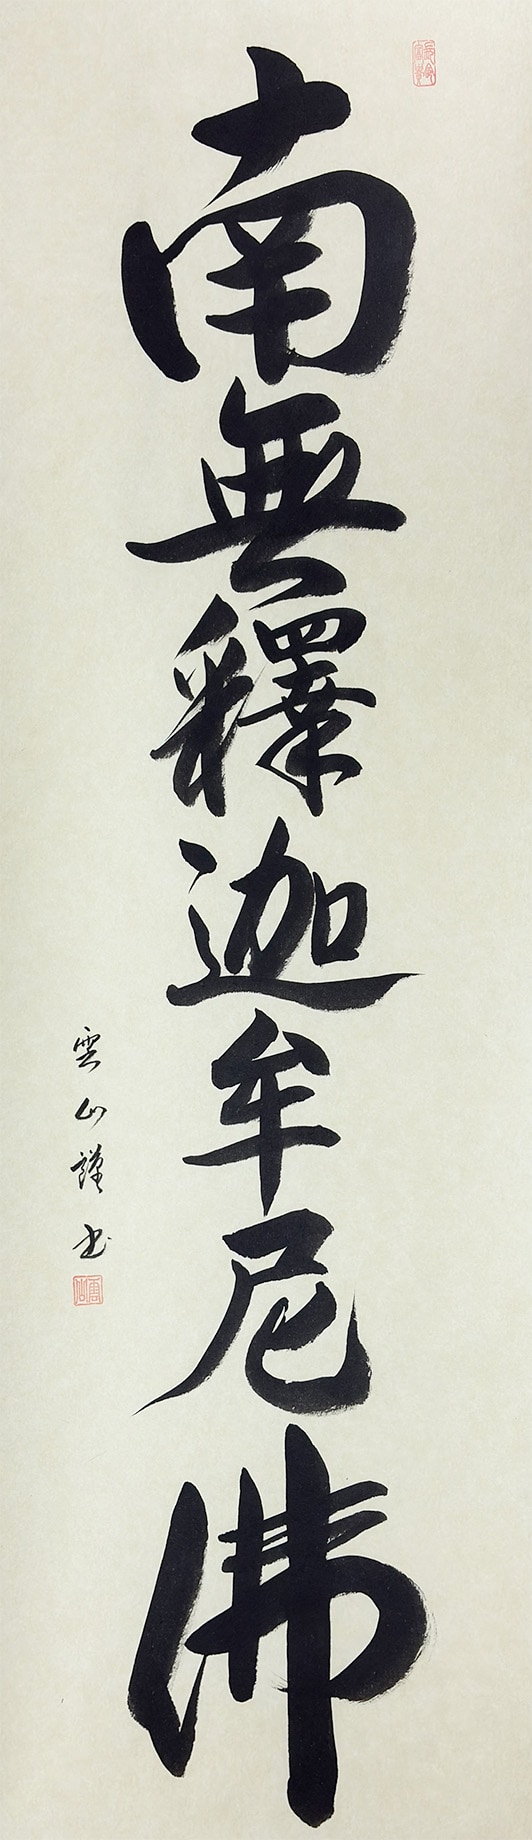 南無釋迦牟尼佛
雲山謹書